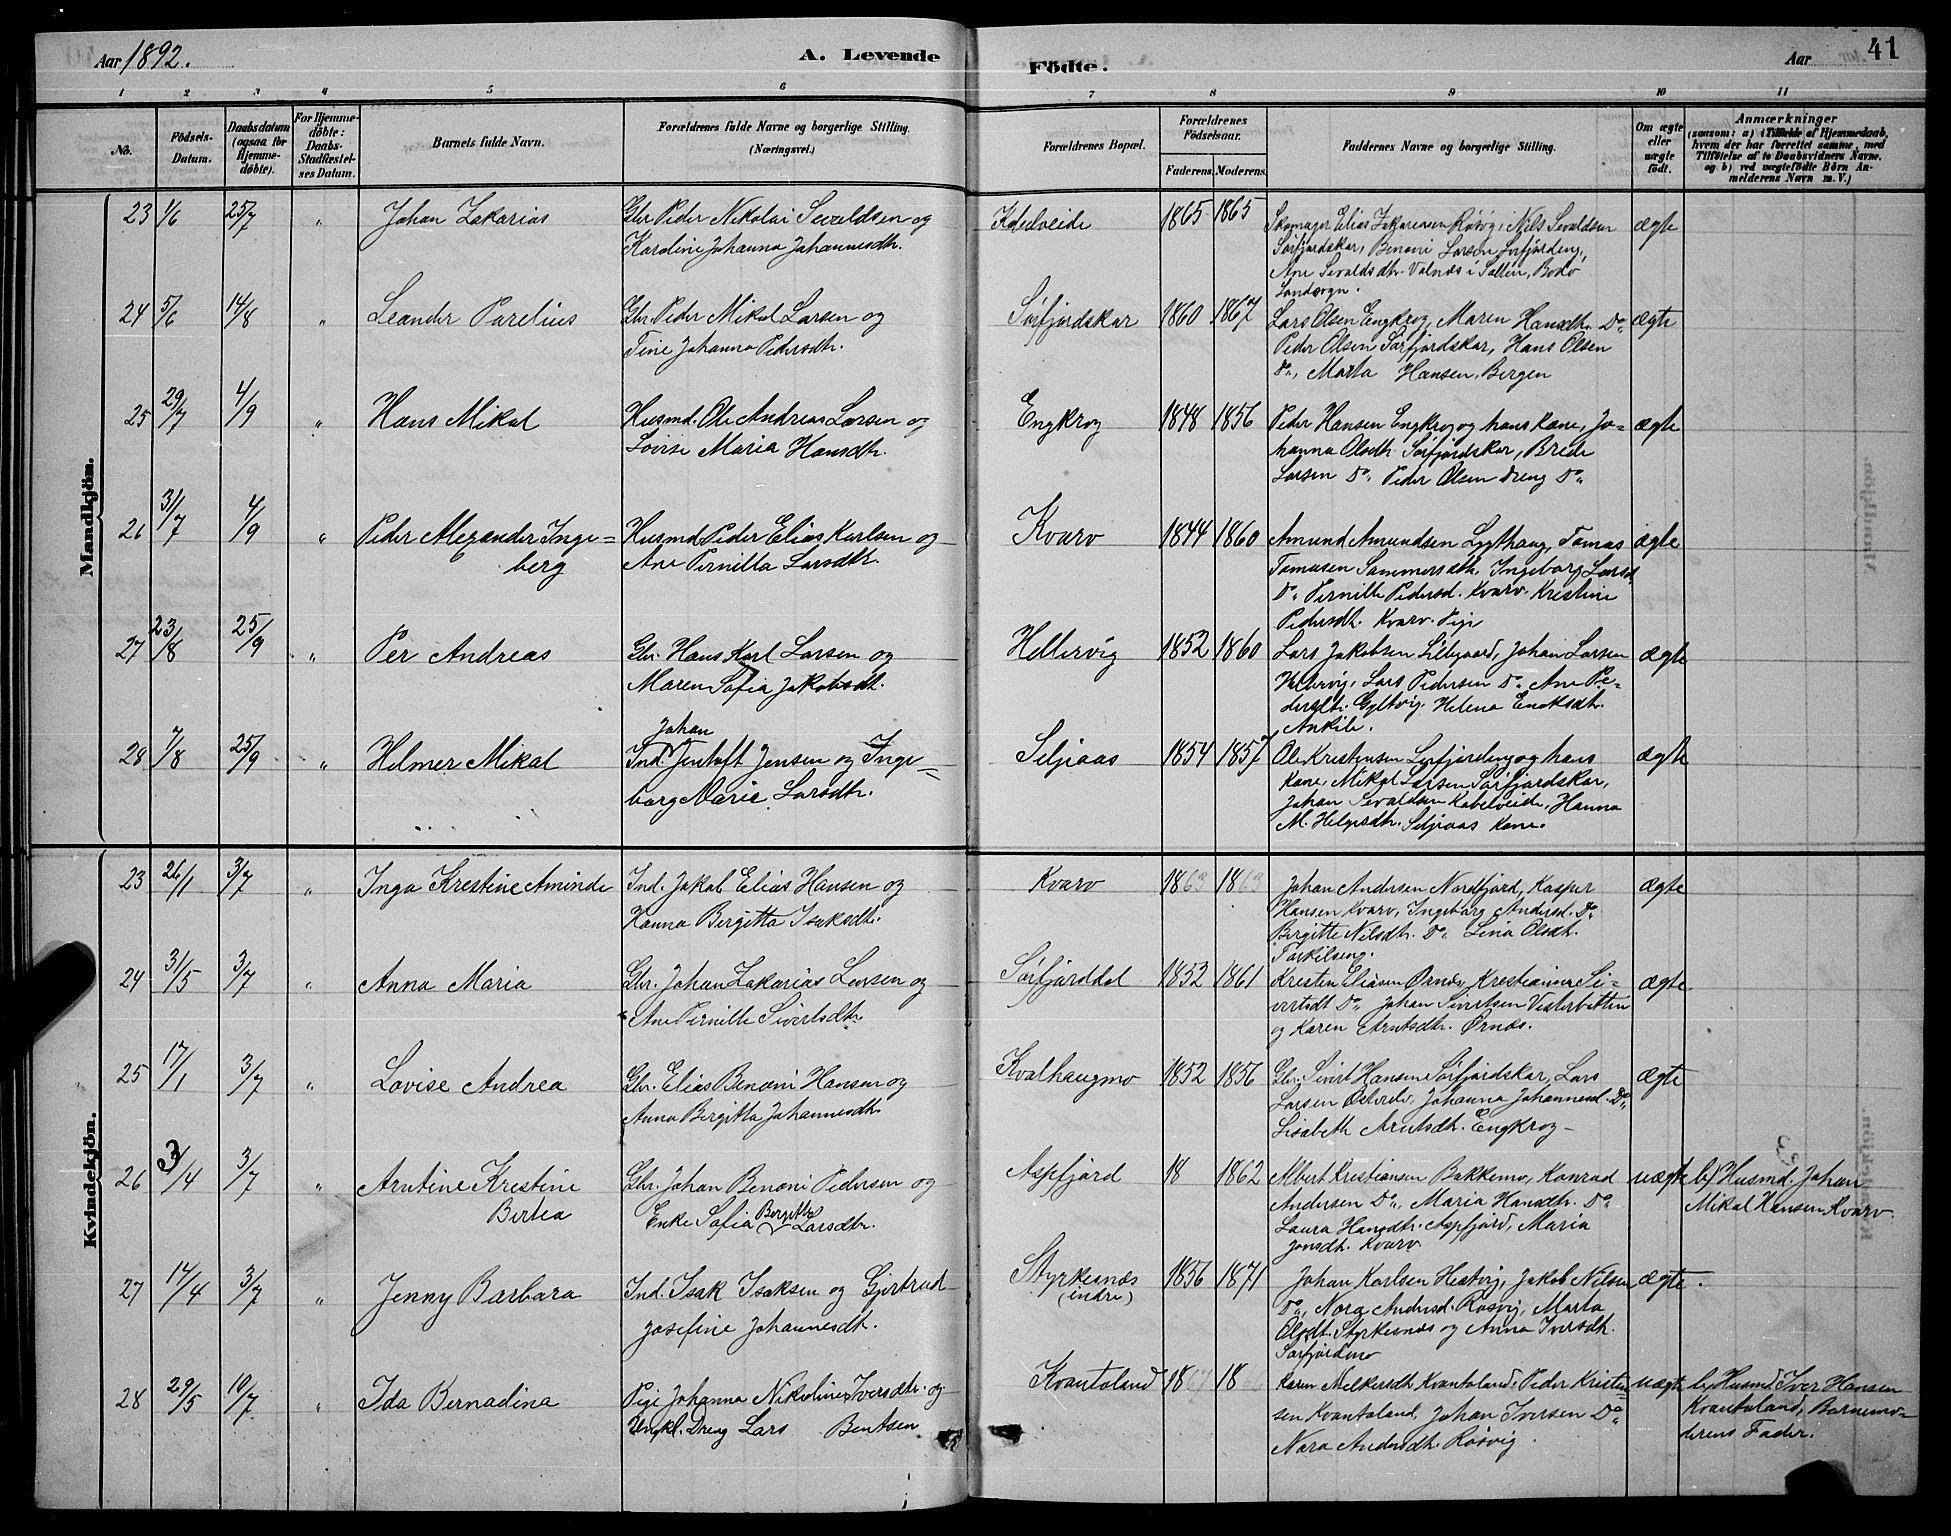 Aar 1892.
A. Levende
Födte.
Aar
41
1 2 3 4 5 6 7 8 9 10 11
No.
Födsels-
Datum.
Daabsdatum
(ogsaa for
Hjemme-
døbte).
For Hjemme-
døbte:
Daabs-
Stadfæstel-
ses Datum.
Barnets fulde Navn.
Forældrenes fulde Navne og borgerlige Stilling.
(Næringsvei.)
Forældrenes Bopæl.
Forældrenes
Födselsaar.
Faderens. Moderens.
Faddernes Navne og borgerlige Stilling.
Om ægte
eller
uægte
födt.
Anmærkninger
(saasom: a) i Tilfælde af Hjemmedaab,
hvem der har forrettet samme, med
Tilföielse af to Daabsvidners Navne,
og b) ved uægtefödte Börn An-
melderens Navn m. V.)
Mandkjön.
23 1/6 25/7 " Johan Zakarias
Gbr. Peder Nikolai Sevaldsen og
Karoline Johanna Johannesdh.
Kobedveide 1865 1865
Skomager Elias Zakariasen Røsvig, Nils Sevaldsen
Sørfjordskar, Benoni Larsen Sørfjordeng,
Ane Sevaldsdtr. Valnæs i Salten, Bodø
Landsogn.
ægte
24 5/6 14/8 " Leander Parelius
Gbr. Peder Mikal Larsen og
Tine Johanna Pedersdh.
Sørfjordskar 1860 1867
Lars Olsen Engkrog, Maren Hansdh. Do
Peder Olsen Sørfjordskar, Hans Olsen
Do, Marta Hansen, Bergen
ægte
25 29/7 4/9 " Hans Mikal
Husmd. Ole Andreas Larsen og
Lovise Maria Hansdh.
Engkrog 1848 1856
Peder Hansen Engkrog og hans kone, Jo-
hanna Olsdh. Sørfjordskar, Brede
Larsen Do. Peder Olsen dreng Do
ægte
26 31/7 4/9 " Peder Alexander Inge-
berg
Husmd. Peder Elias Karlsen og
Ane Pernilla Larsdh.
Kvarv 1844 1860
Amund Amundsen Lygthaug, Tomas
Tomasen Sommersdh. Ingeborg Larsd.
Do. Pernille Pedersd. Kvarv. Kristine
Pedersdh. Kvarv. Pige
ægte
27 23/8 25/9 " Per Andreas
Gbr. Hans Karl Larsen og
Maren Sofia Jakobsdt.
Hellervig 1852 1860
Lars Jakobsen Lillegaard, Johan Larsen
Hellervig, Lars Pedersen Do. Ane Pe-
dersdtr. Gyltvig, Helena Enoksdh.
Ankili.
ægte
28 7/8 25/9 " Helmer Mikal
Johan
Ind. Jentoft Jensen og Inge-
borg Marie Larsdh.
Seljeaas 1854 1857
Ole Kristensen Sørfjordeng og hans
kone, Mikal Larsen Sørfjordskar,
Johan Sevaldsen Kobelveide, Hanna
M. Helgesdh. Seljeaas kone.
ægte
Kvindekjön.
23 26/1 3/7 " Inga Krestine Aminde
Ind. Jakob Elias Hansen og
Hanna Bergitta Isaksdh.
Kvarv 1863 1863
Johan Andersen Nordfjord, Kasper
Hansen Kvarv, Ingeborg Andersd. Do
Birgitte Nilsdh. Do. Lina Olsdt.
Torkilseng.
ægte
24 31/5 3/7 " Anna Maria
Gbr. Johan Zakarias Larsen og
Ane Pernille Sivertsdh
Sørfjorddal 1852 1861
Kristen Eliasen Ørnes, Krestianna Si-
vertsdt Do. Johan Sivertsen Vesterbotten
og Karen Arntsdh. Ørnes.
ægte
25 17/1 3/7 " Lovise Andrea
Gbr. Elias Benoni Hansen og
Anna Bergitta Johannesdh.
Kvalhaugmo 1852 1856
Gbr. Sivert Hansen Sørfjordskar, Lars
Larsen Do, Johanna Johannesd. Do,
Lisabeth Arntsdh. Engkrog
ægte
26 3/4 3/7 " Arntine Krestine
Birtea
Gbr. Johan Benoni Pedersen og
Enke Sofia Bergitte Larsdh.
Aspfjord 18 1862
Albert Kristiansen Bakkemo, Konrad
Andersen Do, Maria Hansdh. Do
Laura Hansdh. Aspfjord, Maria
Jonsdh. Kvarv.
uægte
b/ Husmd. Johan
Mikal Hansen Kvarv.
27 14/4 3/7 " Jenny Barbara
Ind. Isak Isaksen og Gjertrud
Josefine Johannesdh.
Styrkesnæs
(indre)
1856 1871
Johan Karlsen Hestvig, Jakob Nilsen
Do, Nora Andersd. Røsvig, Marta
Olsdt. Styrkesnæs og Anna Iversdh.
Sørfjordmo
ægte.
28 29/5 10/7 " Ida Bernadina
Pige Johanna Nikoline Iversdh. og
Ungkl. Dreng Lars Bentsen
Kvantoland 1867 18
Karen Melkersdh Kvantoland, Peder Kristen-
sen Kvantoland, Johan Iversen Do
Nora Andersdh. Røsvig.
uægte
b/ Husmd. Iver Hansen
Kvantoland, Barnemo-
derens Fader.